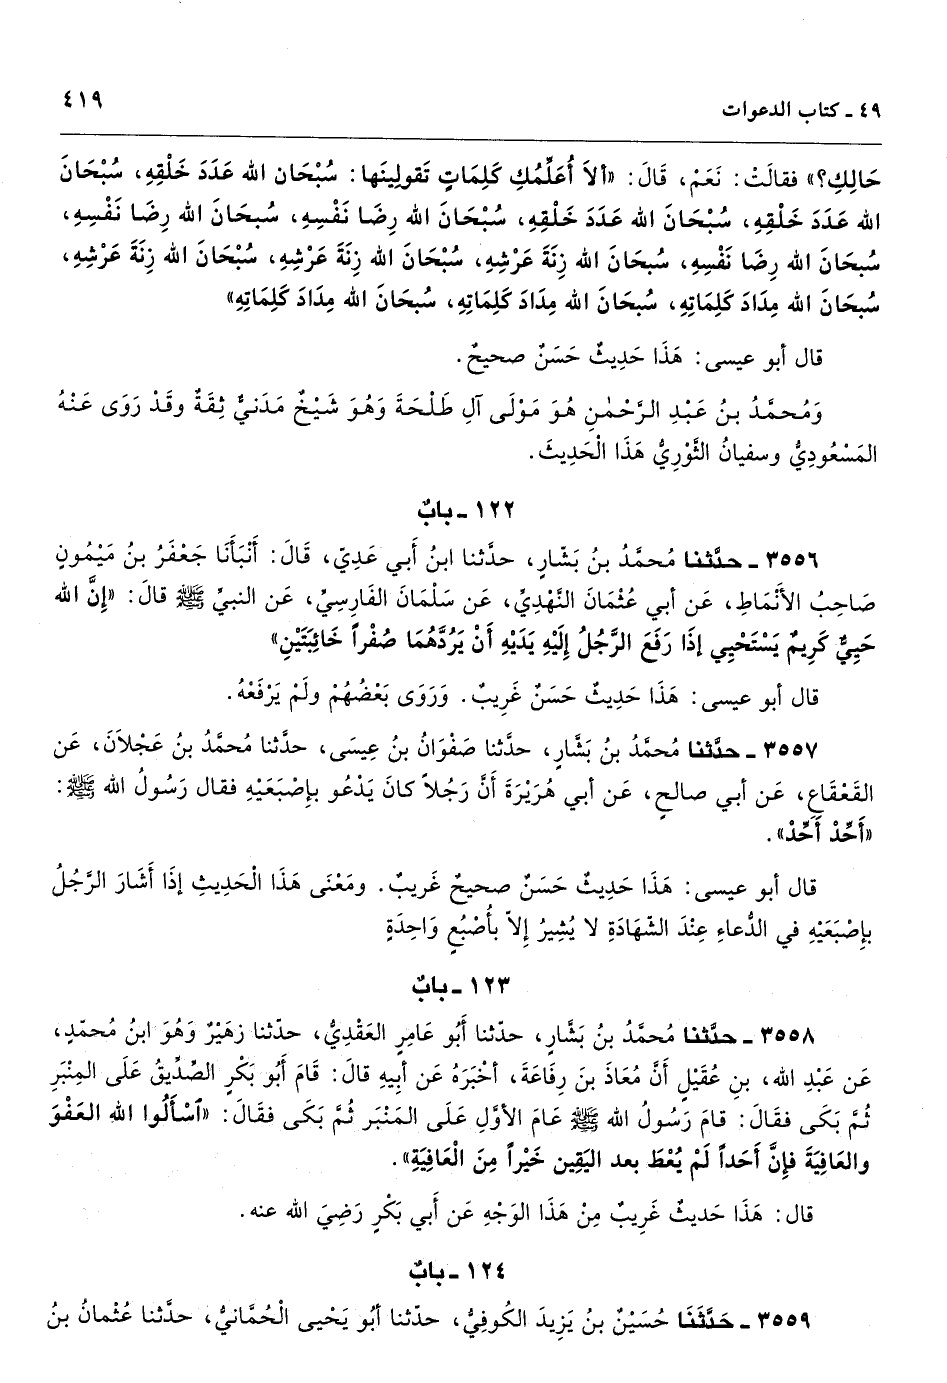 ٤٩ ـ كتاب الدعوات
٤١٩
حَالِكِ؟» فقالتْ: نَعَمْ، قَالَ: «ألاَ أُعَلِّمُكِ كَلِمَاتٍ تَقولِينَها: سُبْحَان الله عَدَدَ خَلْقِهِ، سُبْحَانَ
الله عَدَدَ خَلْقِهِ، سُبْحَانَ الله عَدَدَ خَلْقِهِ، سُبْحَانَ الله رِضَا نَفْسِهِ، سُبحَانَ الله رِضَا نَفْسِهِ،
سُبحَانَ الله رِضَا نَفْسِهِ، سُبحَانَ الله زِنَةَ عَرْشِهِ، سُبْحَانَ الله زِنَةَ عَرْشِهِ، سُبْحَانَ الله زِنَةَ عَرْشِهِ،
سُبحَانَ الله مِدَادَ كَلِمَاتِهِ، سُبحَانَ الله مِدَادَ كَلِمَاتِهِ، سُبحَانَ الله مِدَادَ كَلِمَاتِهِ»
قال أبو عيسى: هَذَا حَدِيثٌ حَسَنٌ صحيحٌ.
وَمُحمَّدُ بنُ عَبْدِ الرَّحْمٰنِ هُوَ مَوْلَى آلِ طَلْحَةَ وَهُوَ شَيْخٌ مَدَنيٌّ ثِقَةٌ وقَدْ رَوَى عَنْهُ
المَسْعُودِيُّ وسفيانُ الثَّوْرِيُّ هَذَا الْحَدِيثَ.
١٢٢ ـ بابٌ
٣٥٥٦ ـ حدَّثنا مُحمَّدُ بنُ بَشَّارٍ، حدَّثنا ابنُ أبي عَدِيّ، قَالَ: أَنْبَأَنَا جَعْفَرُ بنُ مَيْمُونٍ
صَاحِبُ الأَنْمَاطِ، عَن أبي عُثمَانَ النَّهْدِيِّ، عَن سَلْمَانَ الفَارِسِيِّ، عَن النبيِّ ﷺ قالَ: «إنَّ الله
حَيِيٌّ كَرِيمٌ يَسْتَحْيِي إذَا رَفَعَ الرَّجُلُ إلَيْهِ يَدَيْهِ أنْ يَرُدَّهُمَا صُفْراً خَائِبَتَيْنِ»
قال أبو عيسى: هَذَا حَدِيثٌ حَسَنٌ غَرِيبٌ. وَرَوَى بَعْضُهُمْ ولَمْ يَرْفَعْهُ.
٣٥٥٧ ـ حدَّثنا مُحمَّدُ بنُ بَشَّارٍ، حدَّثنا صَفْوَانُ بنُ عِيسَى، حدَّثنا مُحمَّدُ بنُ عَجْلاَنَ، عَن
القَعْقَاعِ، عَن أبي صالحٍ، عَن أبي هُرَيْرَةَ أنَّ رَجُلاً كانَ يَدْعُو بإِصْبَعَيْهِ فقال رَسُولُ الله ﷺ:
«أَحِّدْ أَحِّدْ».
قال أبو عيسى: هَذَا حَدِيثٌ حَسَنٌ صحيحٌ غَرِيبٌ. ومَعْنَى هَذَا الْحَدِيثِ إذَا أَشَارَ الرَّجُلُ
بإِصْبَعَيْهِ في الدُّعاءِ عِنْدَ الشّهَادَةِ لا يُشِيرُ إلاّ بأُصْبُعٍ وَاحِدَةٍ
١٢٣ ـ بابٌ
٣٥٥٨ ـ حدَّثنا مُحمَّدُ بنُ بَشَّارٍ، حدّثنا أَبُو عَامرٍ العَقْدِيُّ، حدّثنا زهَيْرٌ وَهُوَ ابنُ مُحمّدٍ،
عَن عَبْدِ الله، بنِ عُقَيْلٍ أنَّ مُعَاذَ بنَ رِفَاعَةَ، أخْبَرَهُ عَن أبيهِ قالَ: قَامَ أَبُو بَكْرٍ الصِّدِّيقُ عَلَى المِنْبَرِ
ثُمَّ بَكَى فقَالَ: قامَ رَسُولُ الله ﷺ عَامَ الأوَّلِ عَلَى المَنْبَرِ ثُمَّ بَكَى فقَالَ: «ٱسْأَلُوا الله العَفْوَ
والعَافِيَةَ فإِنَّ أَحَداً لَمْ يُعْطَ بعد اليَقِين خَيْراً مِنَ الْعَافِيَةِ».
قال: هَذَا حَديثٌ غَرِيبٌ مِنْ هَذَا الوَجْهِ عَن أَبي بَكْرٍ رَضِيَ الله عنه.
١٢٤ ـ بابٌ
٣٥٥٩ ـ حَدَّثَنَا حُسَيْنٌ بنُ يَزِيدَ الكُوفِيُّ، حدّثنا أَبُو يَحْيى الْحُمَّانيُّ، حدَّثنا عُثْمانُ بنُ